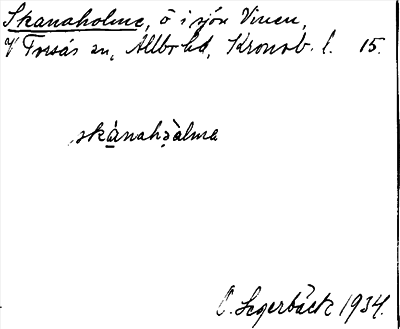 Skanaholme, ö i sjön Vinen,
V Torsås sn, Allbo hd, Kronob. l. 15.
skánahàlma
C. Segerbäck 1934.